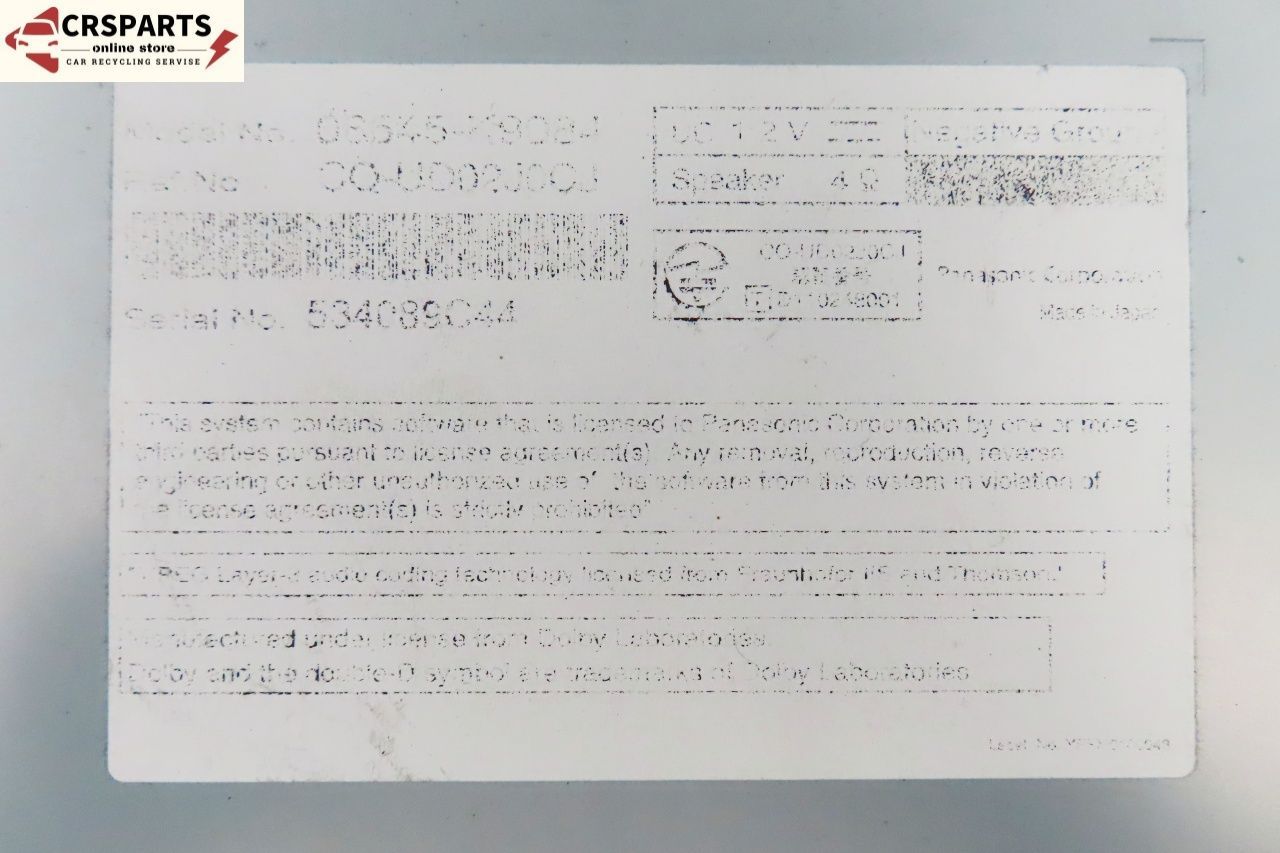 CRSPARTS
online store
CAR RECYCLING SERVISE
Model No.
Ref No
Serial No. 534089C44
DC 12V Negative Ground
Speaker 4 Ω
Panasonic Corporation
Made in Japan
"This system contains software that is licensed to Panasonic Corporation by one or more
third parties pursuant to license agreement(s). Any removal, reproduction, reverse
engineering or other unauthorized use of the software from this system in violation of
the license agreement(s) is strictly prohibited"
audio coding technology licensed from Fraunhofer IIS and Thomson."
Manufactured under license from Dolby Laboratories.
Dolby and the double-D symbol are trademarks of Dolby Laboratories
Label No.